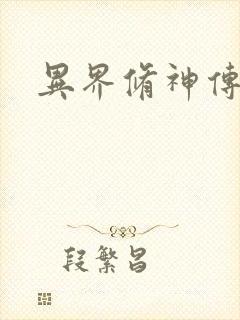 異界脩神傳
段繁昌